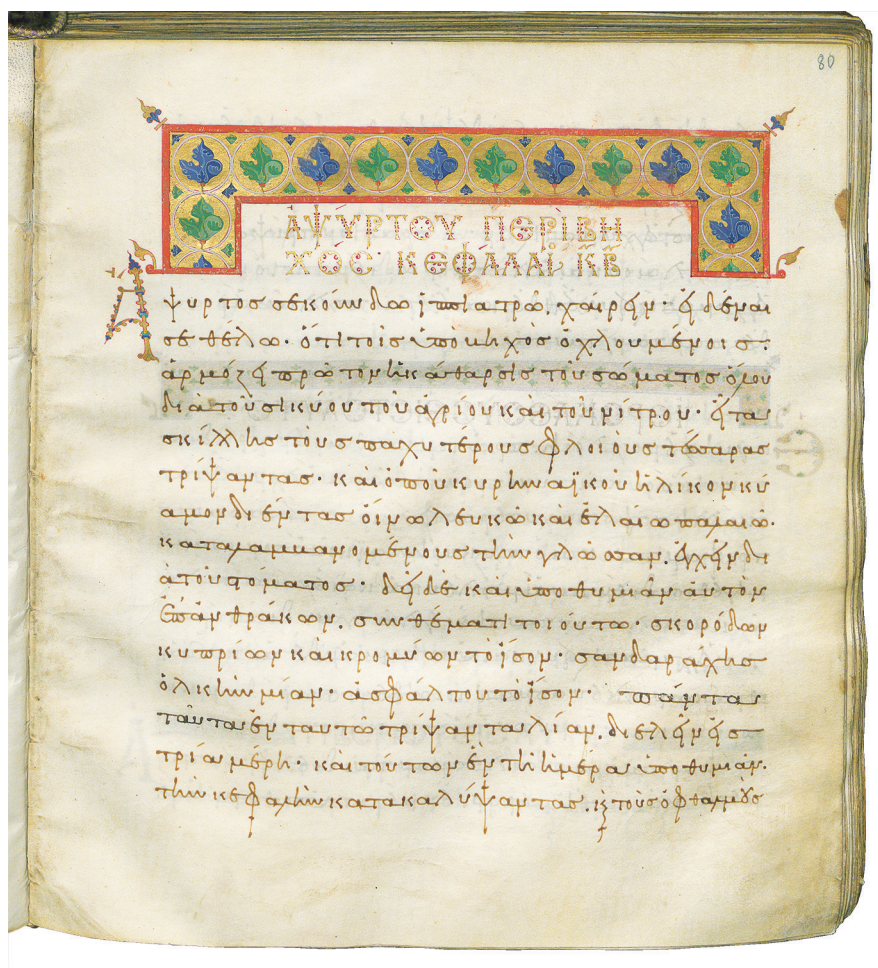 80
ἈΨΎΡΤΟΥ ΠΕΡῚ ΒΗ
ΧΌΣ ΚΕΦΆΛΑΙ ΚΒ
Ἄψυρτος σεκούνδω ἱππιατρῶ. χαίρειν· εἰδέναι
σε θέλω· ὅτι τοῖς ὑπὸ βηχὸς ὀχλουμένοις·
ἁρμόζει πρῶτον ἡ κάθαρσις τοῦ σώματος ὅλου
διὰ τοῦ σικύου τοῦ ἀγρίου καὶ τοῦ νίτρου· εἶτα
σκίλλης τοὺς παχυτέρους φλοιοὺς τέσσαρας
τρίψαντας· καὶ ὀποῦ κυρηναϊκοῦ ἡλίκον κύ
αμον διέντας οἴνω λευκῶ καὶ ἐλαίω παλαιῶ.
καταλαμβανομένους τὴν γλῶσσαν. ἐγχεῖν δι
ὰ τοῦ στόματος· δεῖ δὲ καὶ ὑποθυμιᾶν αὐτὸν
ἐπ' ἀνθράκων. συνθέματι τοιούτω· σκορόδων
κυπρίων καὶ κρομύων τὸ ἴσον· σανδαράχης
ὁλκὴν μίαν· ἀσφάλτου τὸ ἴσον· πάντα
ταῦτα ἐν ταυτῶ τρίψαντα λίαν. διελεῖν εἰς
τρία μέρη· καὶ τούτων ἐν τῆ ἡμέρα ὑποθυμιᾶν.
τὴν κεφαλὴν κατακαλύψαντας. κ τοὺς ὀφθαλμοὺς